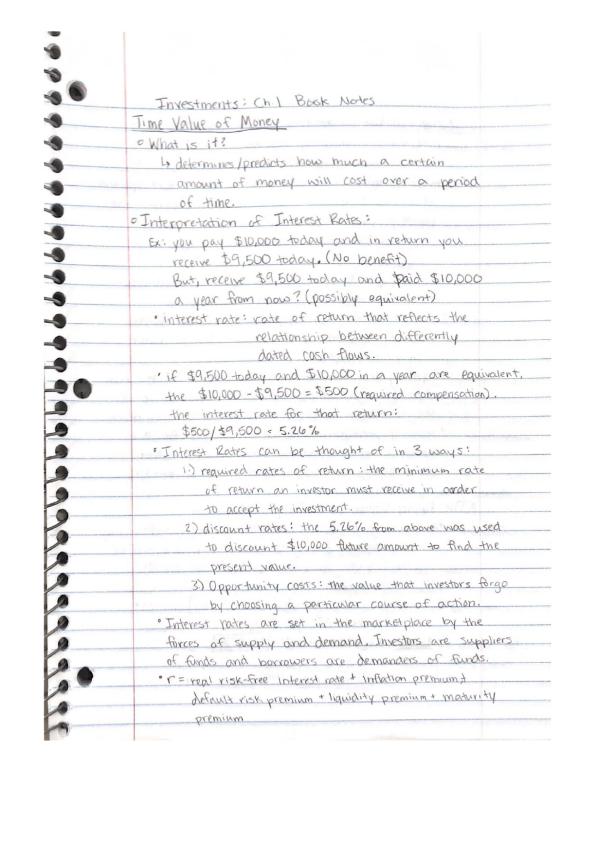 Investments: Ch.1 Book Notes
Time Value of Money
◦ What is it?
↳ determines/predicts how much a certain
amount of money will cost over a period
of time.
◦ Interpretation of Interest Rates:
Ex: you pay $10,000 today and in return you
receive $9,500 today. (No benefit)
But, receive $9,500 today and paid $10,000
a year from now? (possibly equivalent)
• interest rate: rate of return that reflects the
relationship between differently
dated cash flows.
• if $9,500 today and $10,000 in a year are equivalent,
the $10,000 - $9,500 = $500 (required compensation).
the interest rate for that return:
$500/$9,500 = 5.26%
• Interest Rates can be thought of in 3 ways:
1.) required rates of return: the minimum rate
of return an investor must receive in order
to accept the investment.
2) discount rates: the 5.26% from above was used
to discount $10,000 future amount to find the
present value.
3) Opportunity costs: the value that investors forgo
by choosing a particular course of action.
• Interest rates are set in the marketplace by the
forces of supply and demand. Investors are suppliers
of funds and borrowers are demanders of funds.
• r = real risk-free interest rate + inflation premium +
default risk premium + liquidity premium + maturity
premium